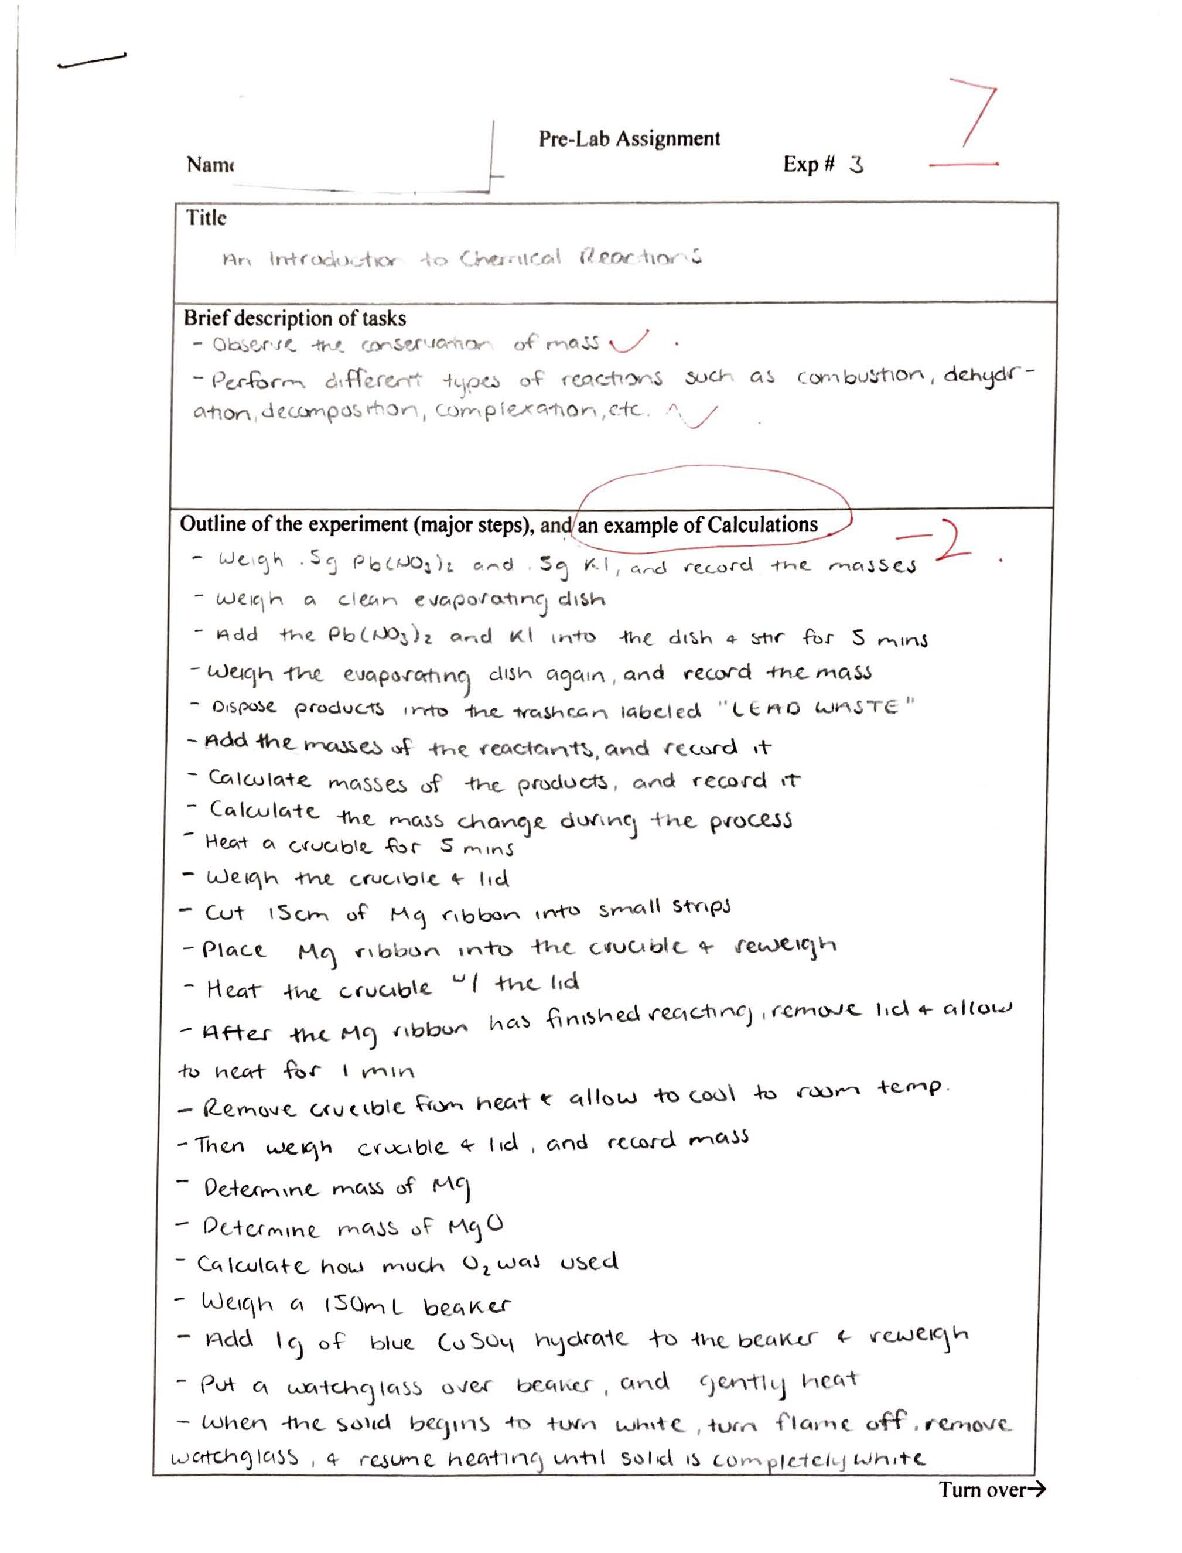 7
Pre-Lab Assignment
Name
Exp # 3
Title
An Introduction to Chemical Reactions
Brief description of tasks
- Observe the conservation of mass
- Perform different types of reactions such as combustion, dehydr-
ation, decomposition, complexation, etc.
Outline of the experiment (major steps), and an example of Calculations
-2
- Weigh .5g Pb(NO3)2 and .5g KI, and record the masses
- Weigh a clean evaporating dish
- Add the Pb(NO3)2 and KI into the dish & stir for 5 mins
- Weigh the evaporating dish again, and record the mass
- Dispose products into the trashcan labeled "LEAD WASTE"
- Add the masses of the reactants, and record it
- Calculate masses of the products, and record it
- Calculate the mass change during the process
- Heat a crucible for 5 mins
- Weigh the crucible & lid
- Cut 15cm of Mg ribbon into small strips
- Place Mg ribbon into the crucible & reweigh
- Heat the crucible w/ the lid
- After the Mg ribbon has finished reacting, remove lid & allow
to heat for 1 min
- Remove crucible from heat & allow to cool to room temp.
- Then weigh crucible & lid, and record mass
- Determine mass of Mg
- Determine mass of MgO
- Calculate how much O2 was used
- Weigh a 150mL beaker
- Add 1g of blue CuSO4 hydrate to the beaker & reweigh
- Put a watchglass over beaker, and gently heat
- When the solid begins to turn white, turn flame off, remove
watchglass, & resume heating until solid is completely white
Turn over→